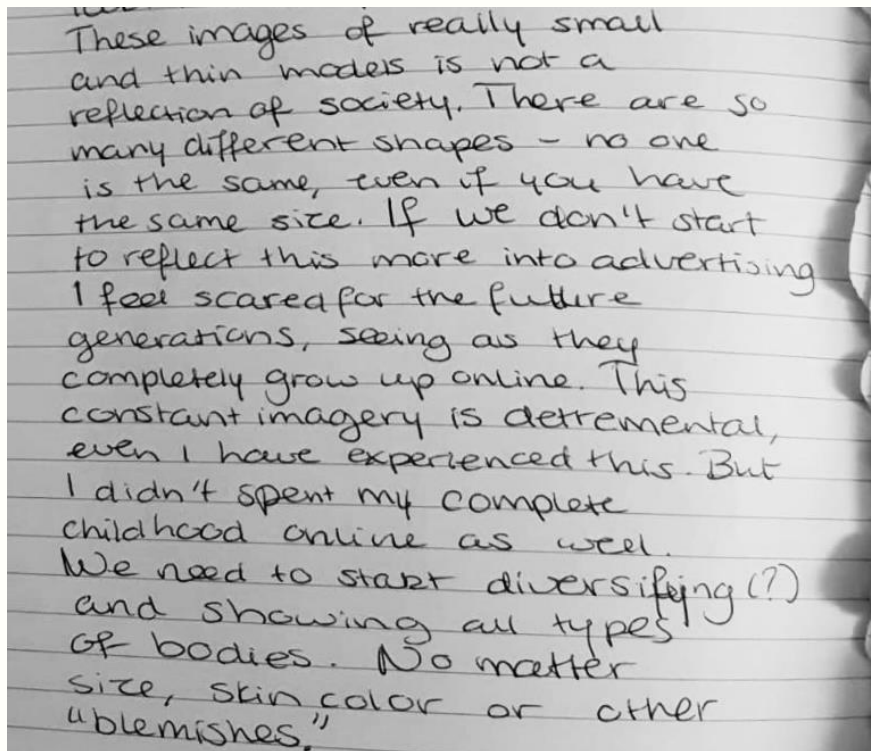 These images of really small
and thin models is not a
reflection of society. There are so
many different shapes - no one
is the same, even if you have
the same size. If we don't start
to reflect this more into advertising
I feel scared for the future
generations, seeing as they
completely grow up online. This
constant imagery is detremental,
even I have experienced this. But
I didn't spent my complete
childhood online as well.
We need to start diversifying (?)
and showing all types
of bodies. No matter
size, skin color or other
"blemishes."